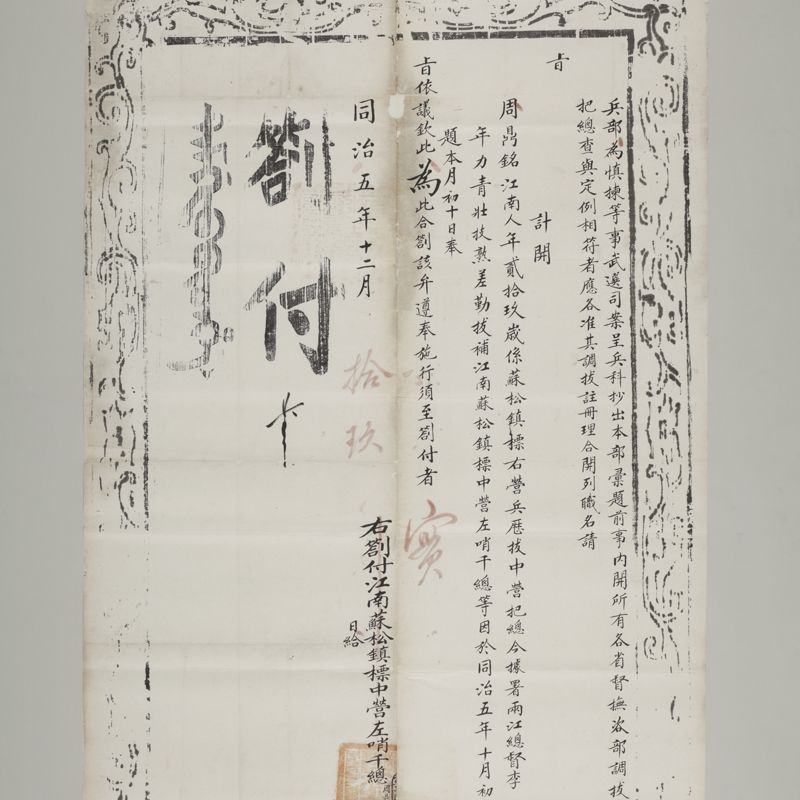 兵部為慎揀等事武選司案呈兵科抄出本部彙題前事內開所有各省督撫咨部調拔
把總查與定例相符者應各准其調拔註冊理合開列職名請
旨
計開
周鼎銘江南人年貳拾玖歲係蘇松鎮標右營兵歷拔中營把總今據署兩江總督李
年力青壯技熟差勤拔補江南蘇松鎮標中營左哨千總等因於同治五年十月初
題本月初十日奉
旨依議欽此為此合劄該弁遵奉施行須至劄付者
實
右劄付江南蘇松鎮標中營左哨千總
同治五年十二月
拾玖
日給
劄付